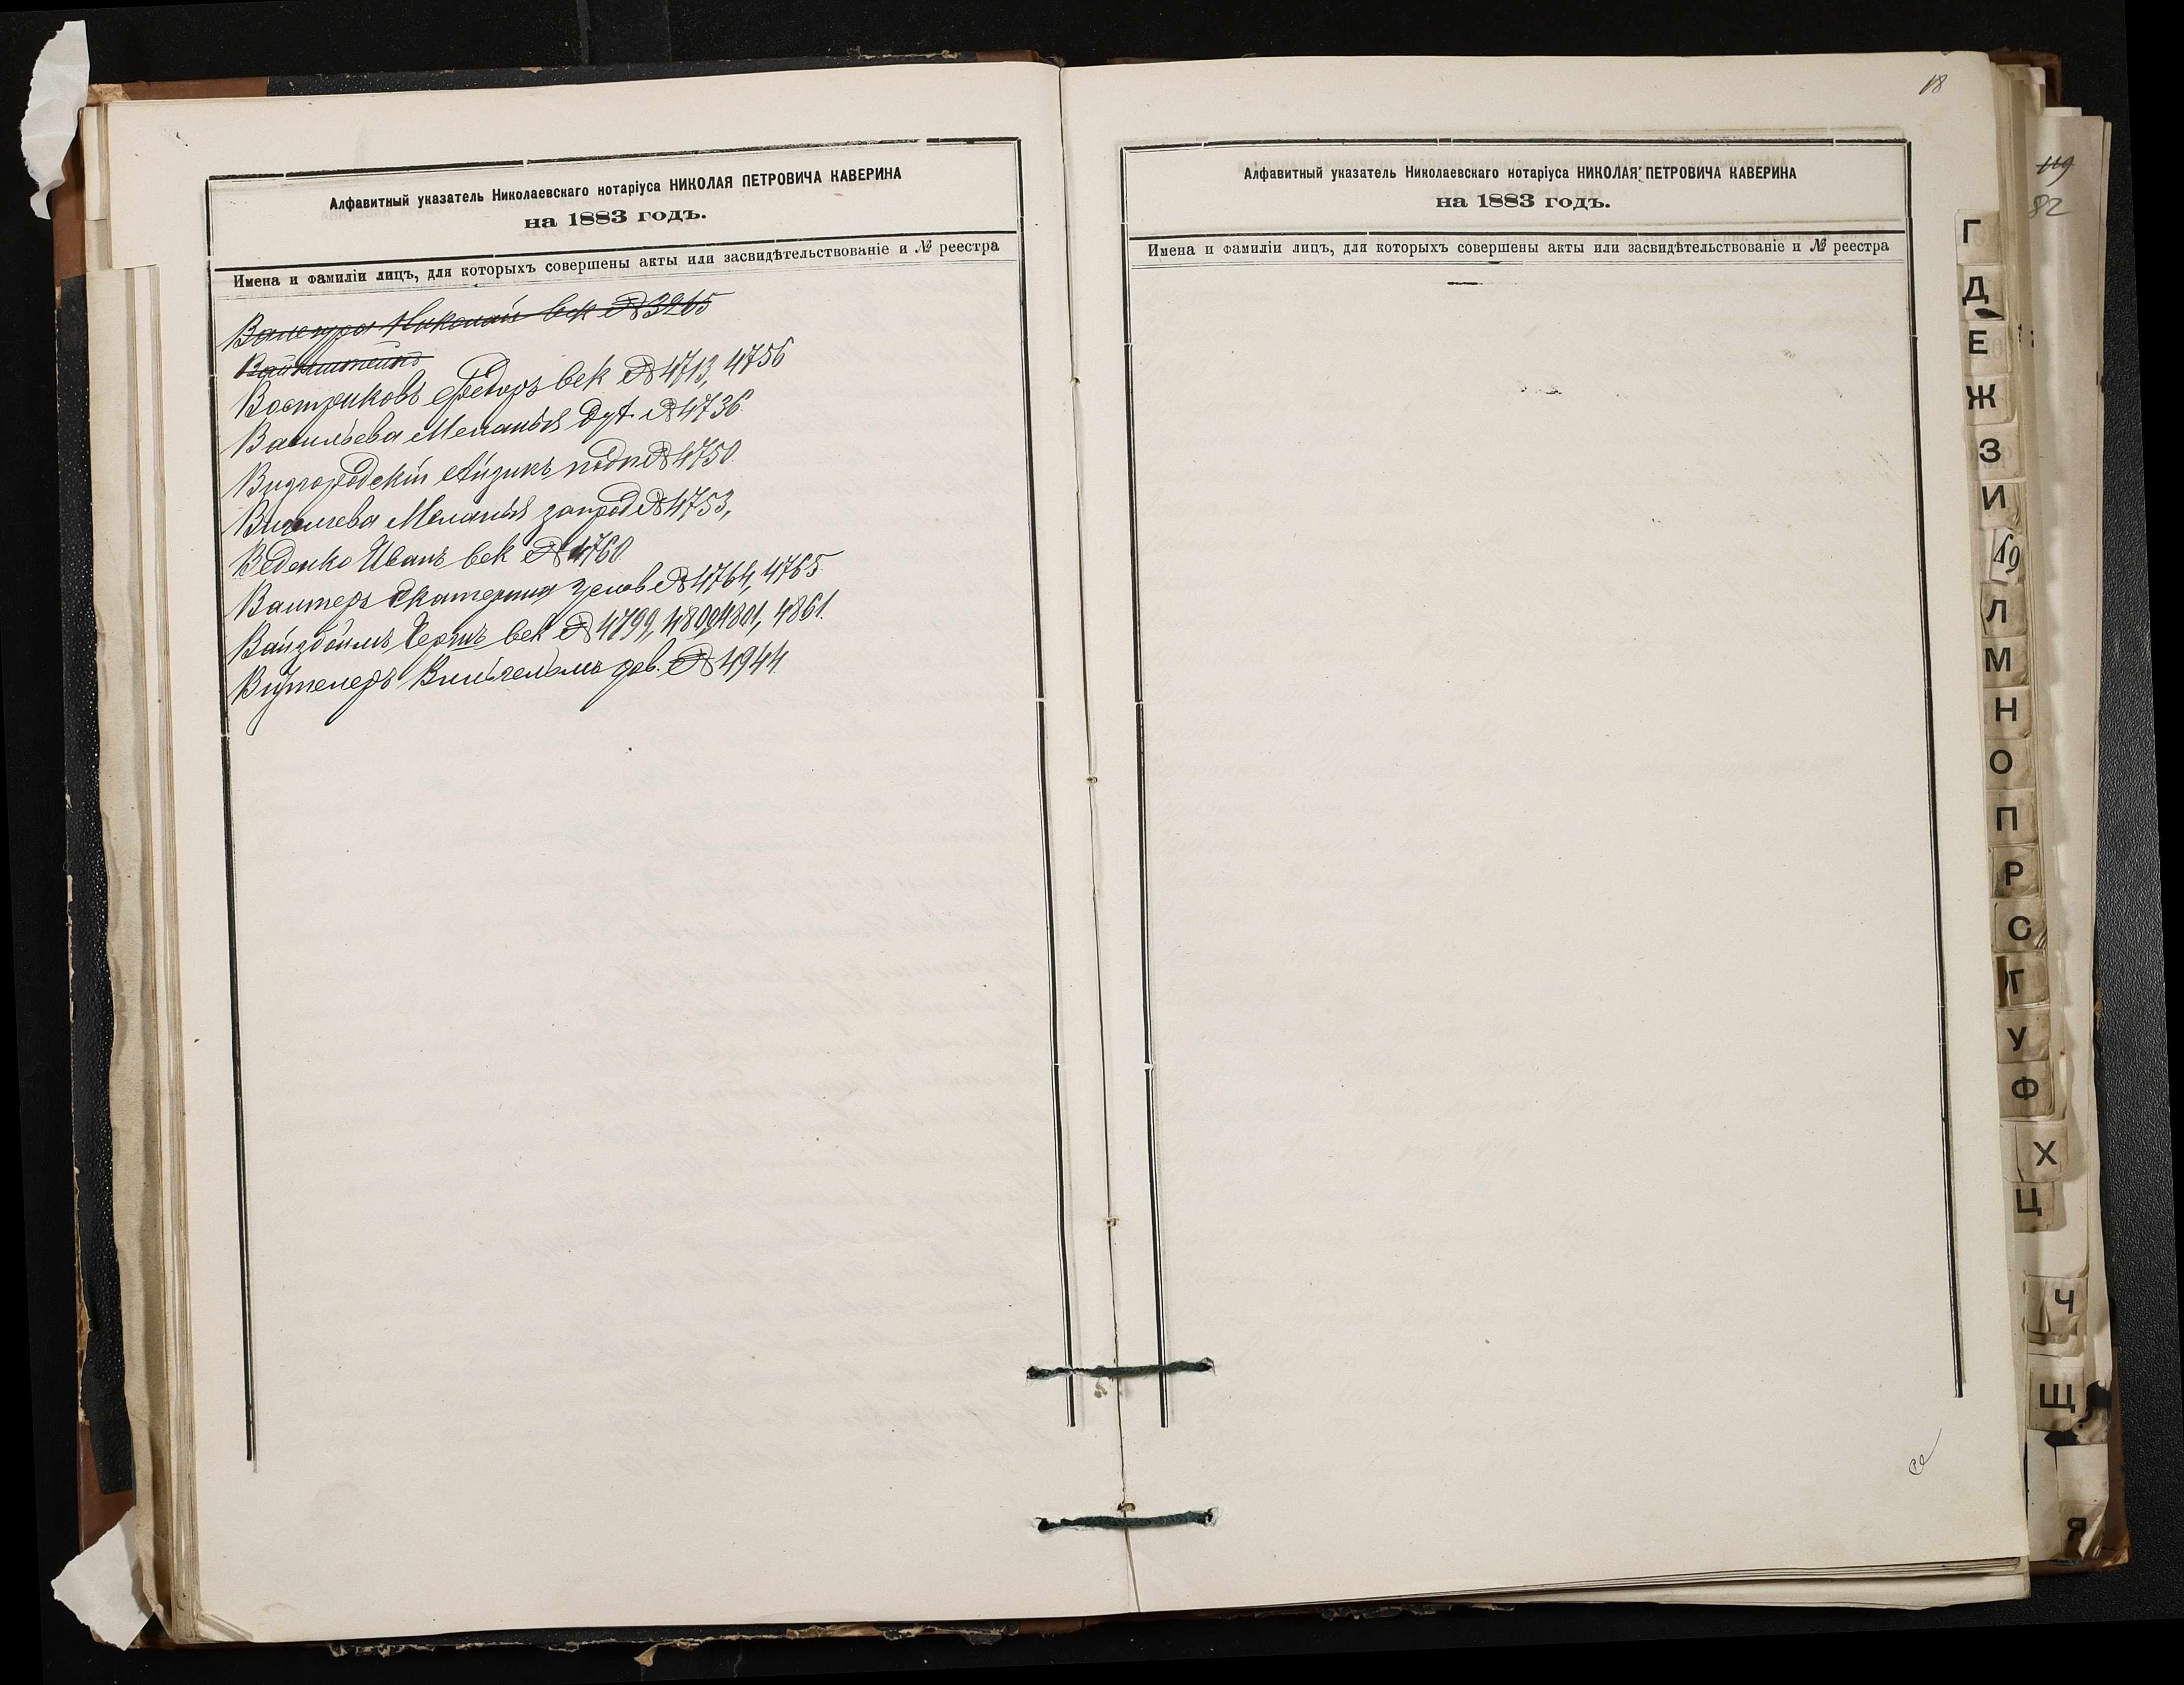 Алфавитный указатель Николаевскаго нотаріуса НИКОЛАЯ ПЕТРОВИЧА КАВЕРИНА
на 1883 годъ.
Имена и фамиліи лицъ, для которыхъ совершены акты или засвидѣтельствованіе и № реестра
Николай век № 3265
Востриковъ Ѳедоръ век № 4713, 4756
Васильева Меланья № 4736
Айзикъ подп № 4750
Меланья № 4753,
Веденко Иванъ век № 4760
Вальтеръ Екатерина услов № 4764, 4765
век № 4799, 4801, 4861.
Вильгельмъ дов. № 4944
18
Алфавитный указатель Николаевскаго нотаріуса НИКОЛАЯ ПЕТРОВИЧА КАВЕРИНА
на 1883 годъ.
Имена и фамиліи лицъ, для которыхъ совершены акты или засвидѣтельствованіе и № реестра
119
82
Г
Д
Е
Ж
З
И
19
Л
М
Н
О
П
Р
С
Т
У
Ф
Х
Ц
Ч
Щ
Я